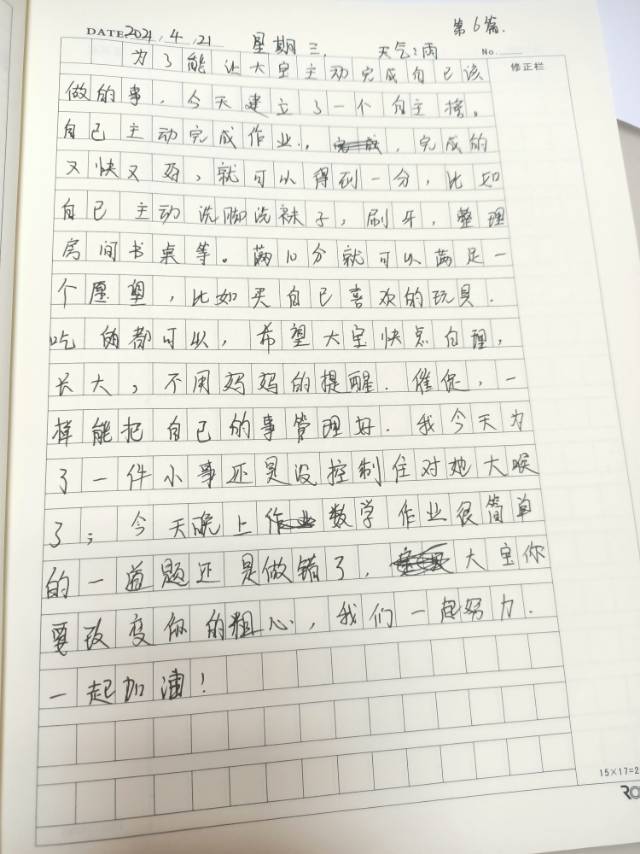 第6篇.
DATE 2021.4.21 星期三. 天气:雨 No.
修正栏
为了能让大宝主动完成自己该
做的事,今天建立了一个自主擦,
自己主动完成作业,,完成的
又快又好,就可以得到一分,比如
自己主动洗脚洗袜子,刷牙,整理
房间书桌等。满10分就可以满足一
个愿望,比如买自己喜欢的玩具.
吃的都可以,希望大宝快点自理,
长大,不用妈妈的提醒.催促,一
样能把自己的事管理好.我今天为
了一件小事还是没控制住对她大喉
了;今天晚上作业数学作业很简单
的一道题还是做错了,大宝你
要改变你的粗心,我们一起努力.
一起加油!
15×17=2
RO